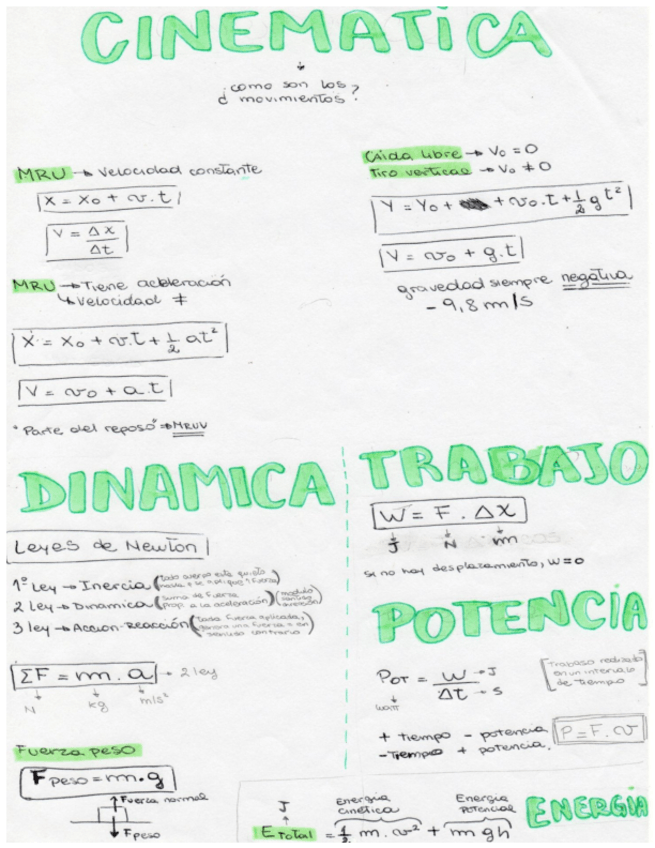 CINEMATICA
¿como son los
movimientos?
MRU → Velocidad constante
X = X₀ + v.t
V = Δx / Δt
MRU → Tiene aceleración
↳ Velocidad ≠
X = X₀ + v.t + 1/2 at²
V = v₀ + a.t
"Parte del reposo" → MRUV
Caida libre → V₀ = 0
Tiro vertical → V₀ ≠ 0
Y = Y₀ + + v₀.t + 1/2 g t²
V = v₀ + g.t
gravedad siempre negativa
- 9,8 m/s
DINAMICA
Leyes de Newton
1º Ley → Inercia (todo cuerpo esta quieto
hasta q se aplique 1 fuerza)
2 Ley → Dinamica (suma de fuerza
prop. a la aceleración) (modulo
sentido
dirección)
3 ley → Accion-Reacción (toda fuerza aplicada,
genera una fuerza = en
sentido contrario)
ΣF = m . a → 2 ley
N kg m/s²
Fuerza peso
F peso = m.g
Fuerza normal
F peso
TRABAJO
W = F . Δx
J N m
Si no hay desplazamiento, w=0
POTENCIA
Pot = W → J
Δt → s
watt
[Trabajo realizado
en un intervalo
de tiempo]
+ tiempo - potencia
- Tiempo + potencia.
P = F. v
ENERGIA
J Energia
cinetica Energia
Potencial
E Total = 1/2 m . v² + m g h